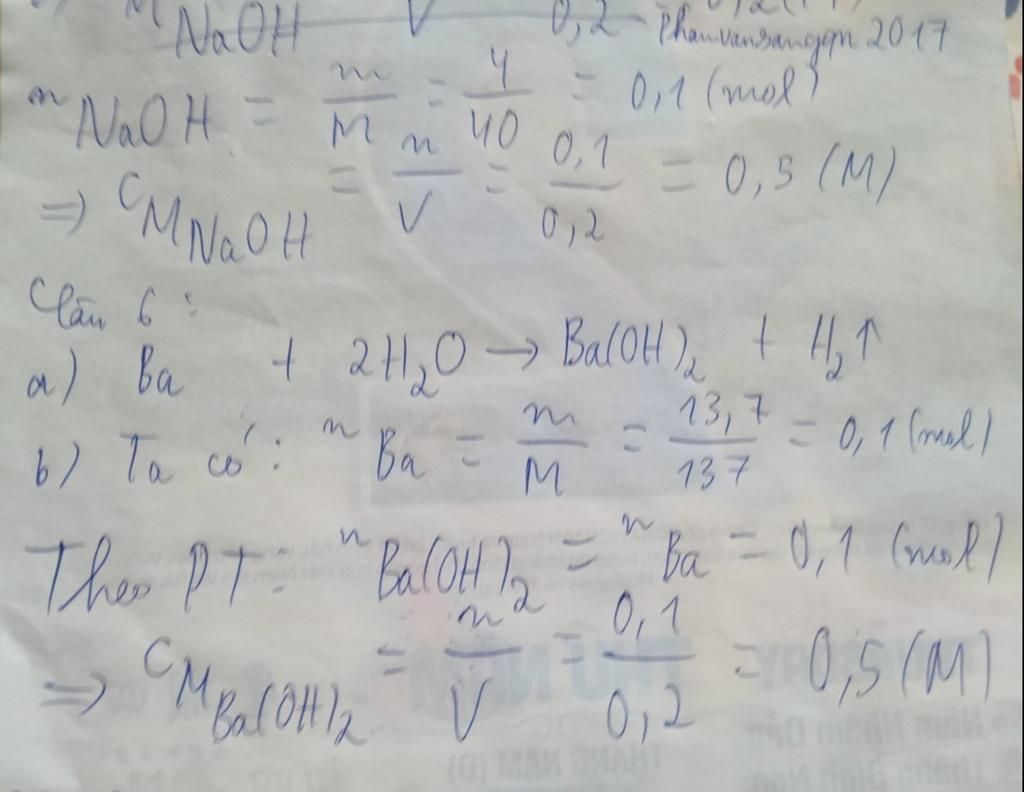 M NaOH V 0,2 Phanvansangqn 2017
n NaOH = m/M = 4/40 = 0,1 (mol)
=> C M NaOH = n/V = 0,1/0,2 = 0,5 (M)
Câu 6 :
a) Ba + 2H₂O → Ba(OH)₂ + H₂↑
b) Ta có : n Ba = m/M = 13,7/137 = 0,1 (mol)
Theo PT : n Ba(OH)₂ = n Ba = 0,1 (mol)
=> C M Ba(OH)₂ = n/V = 0,1/0,2 = 0,5 (M)